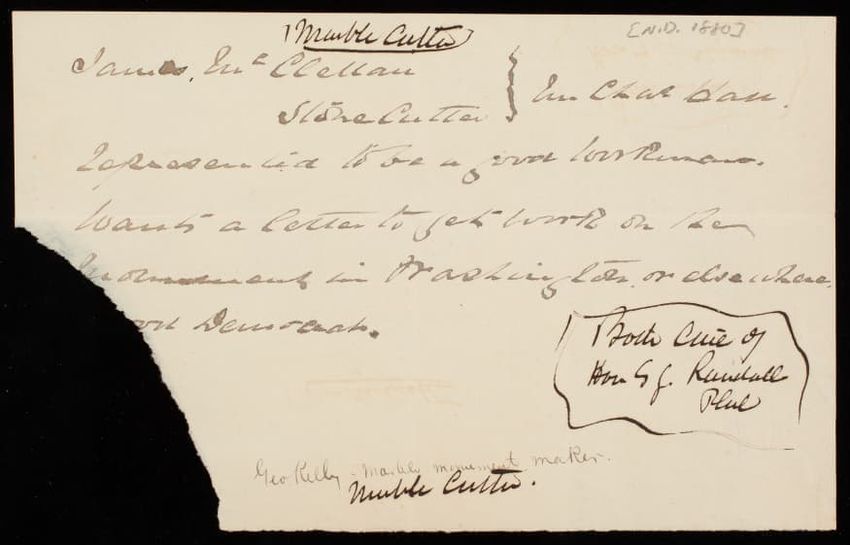 [N.D. 1880]
(Marble Cutter)
James, Mc Clellan
Stone Cutter } Em Chas Hall.
Represented to be a good workman.
Wants a letter to get work on the
Monument in Washington, or elsewhere.
Good Democrat.
Both care of
Hon S J. Randall
Phil
Geo Kelly - marble monument maker.
Marble Cutter.